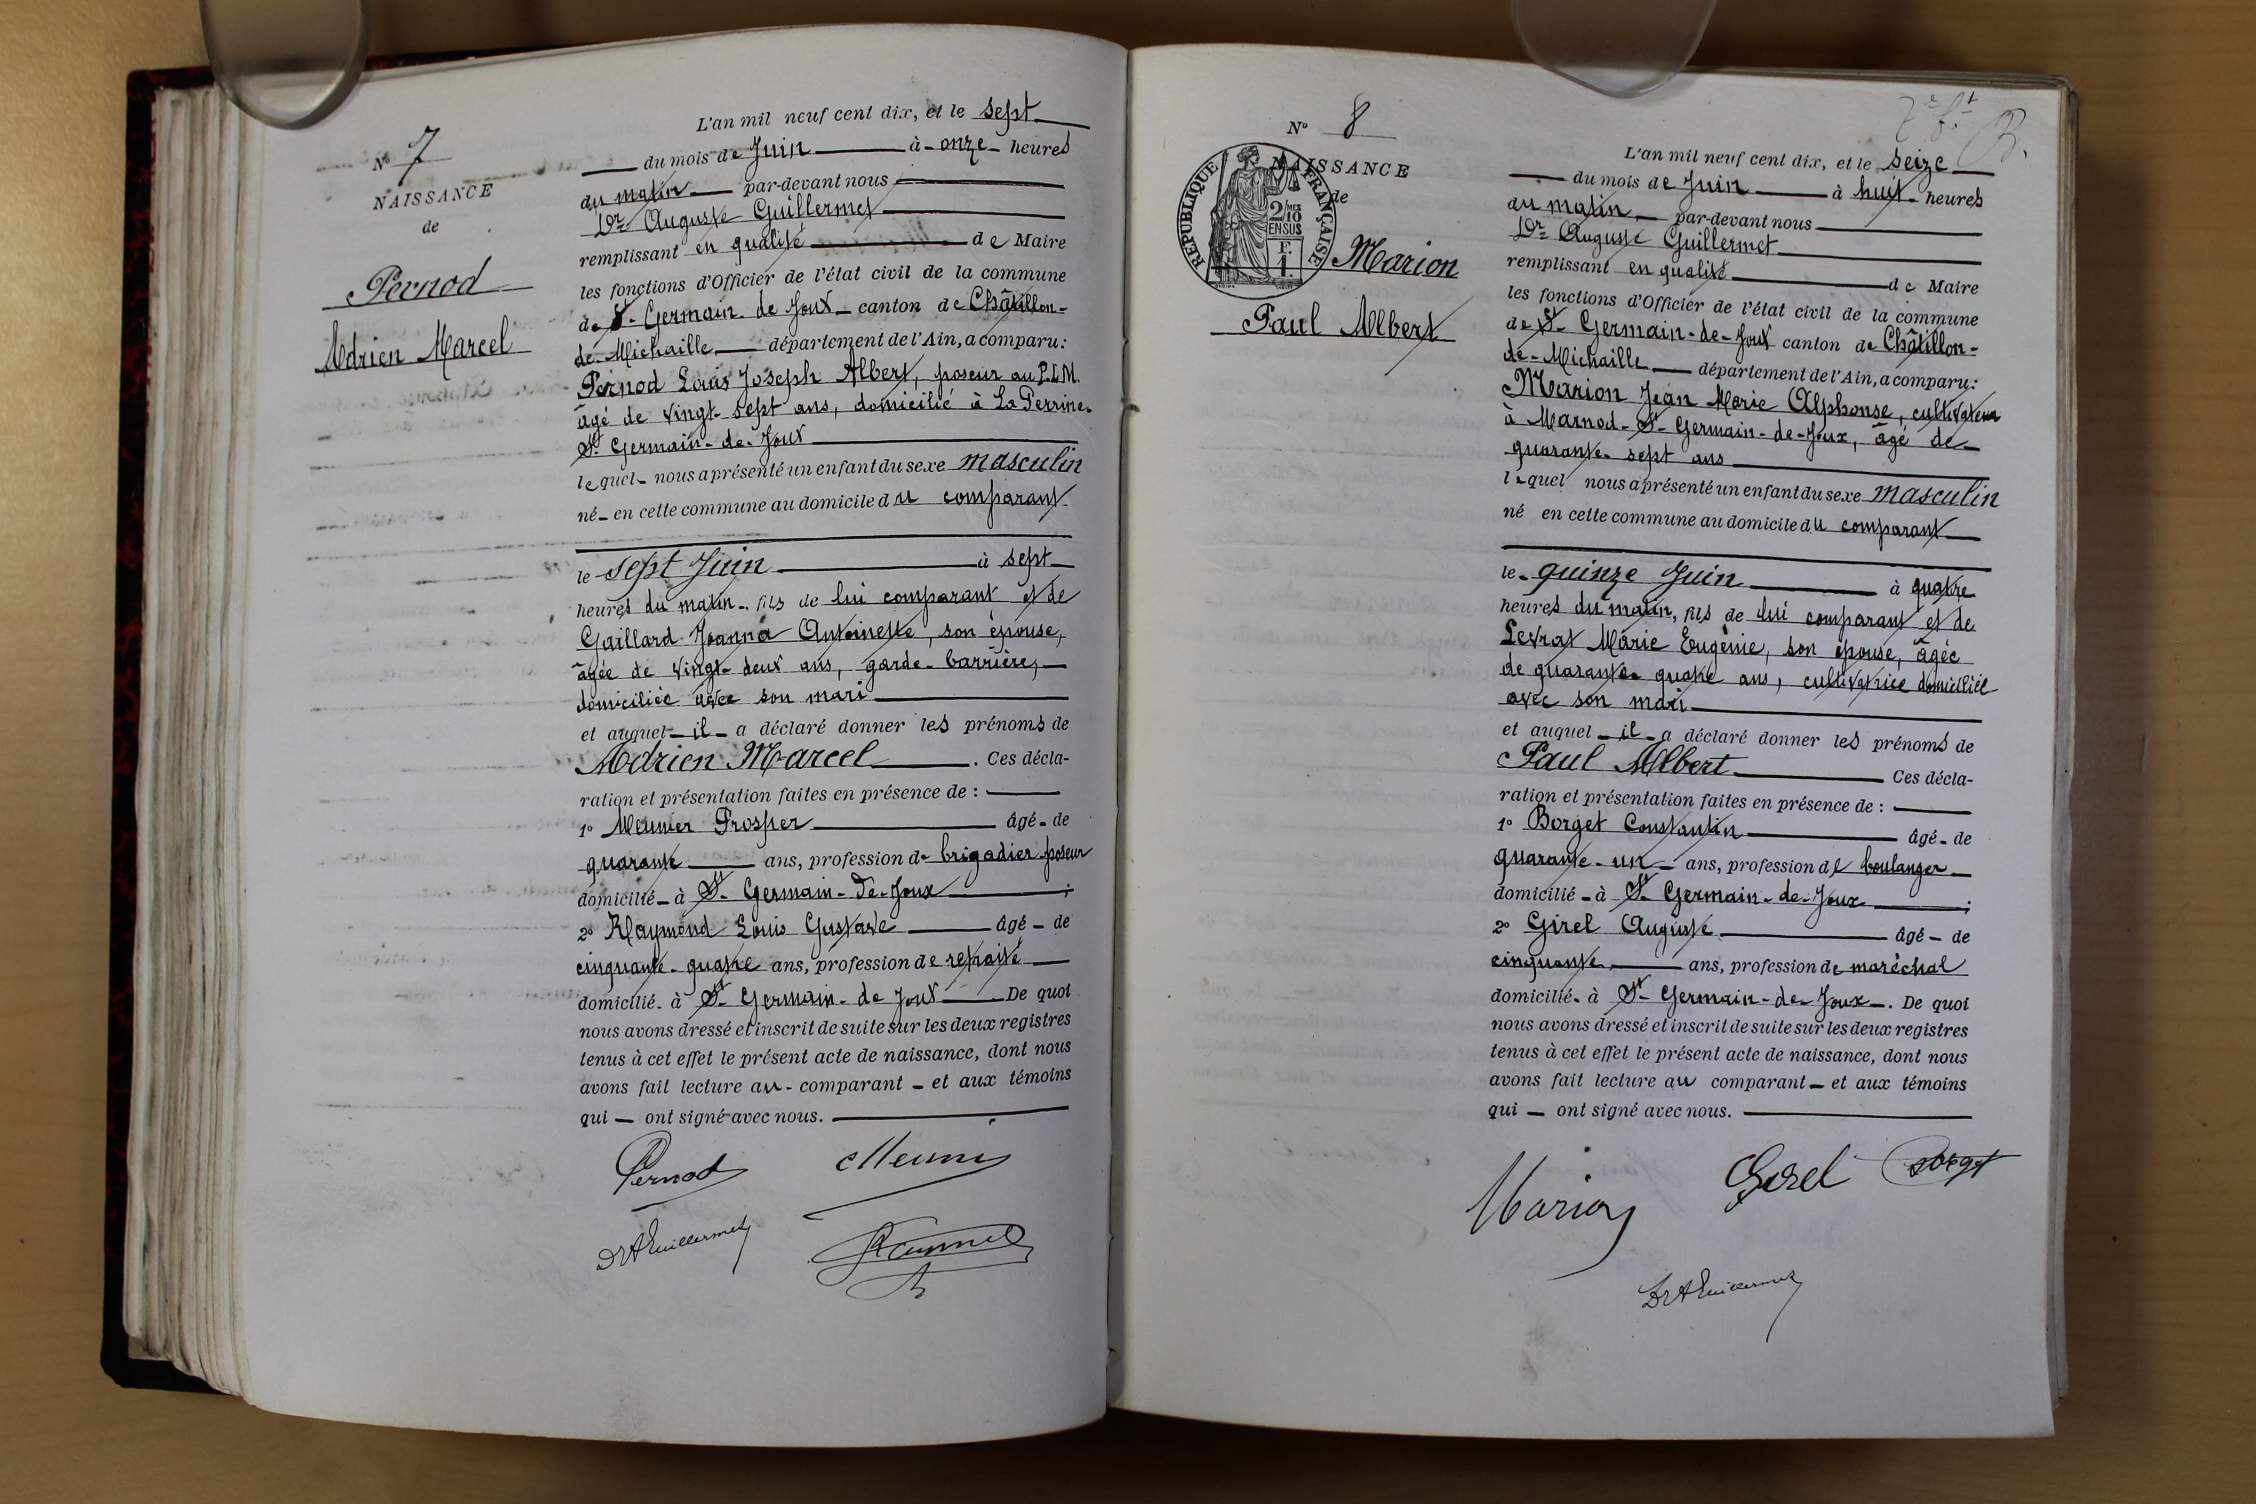 N° 7
NAISSANCE
de
Pernod
Adrien Marcel
L'an mil neuf cent dix, et le sept
du mois de Juin à onze heures
du matin par-devant nous
Dr Auguste Guillermet
remplissant en qualité de Maire
les fonctions d'Officier de l'état civil de la commune
de St Germain de Joux canton de Châtillon-
de-Michaille département de l'Ain, a comparu:
Pernod Louis Joseph Albert, poseur au P.L.M.
âgé de vingt-sept ans, domicilié à La Perrine-
St Germain-de-Joux
lequel nous a présenté un enfant du sexe masculin
né en cette commune au domicile du comparant
le sept Juin à sept
heures du matin, fils de lui comparant et de
Gaillard Joanna Antoinette, son épouse,
âgée de vingt-deux ans, garde-barrière,
domiciliée avec son mari
et auquel il a déclaré donner les prénoms de
Adrien Marcel. Ces décla-
ration et présentation faites en présence de :
1° Meunier Prosper âgé de
quarante ans, profession de brigadier-poseur
domicilié à St Germain-de-Joux ;
2° Raymond Louis Gustave âgé de
cinquante-quatre ans, profession de retraité
domicilié à St Germain-de-Joux De quoi
nous avons dressé et inscrit de suite sur les deux registres
tenus à cet effet le présent acte de naissance, dont nous
avons fait lecture au comparant et aux témoins
qui ont signé avec nous.
Pernod Meunier
Dr A Guillermet
N° 8
NAISSANCE
de
RÉPUBLIQUE FRANÇAISE
2/10 MES
EN SUS
F.
1.
Marion
Paul Albert
L'an mil neuf cent dix, et le seize
du mois de Juin à huit heures
du matin par-devant nous
Dr Auguste Guillermet
remplissant en qualité de Maire
les fonctions d'Officier de l'état civil de la commune
de St Germain-de-Joux canton de Châtillon-
de-Michaille département de l'Ain, a comparu:
Marion Jean Marie Alphonse, cultivateur
à Marnod-St Germain-de-Joux, âgé de
quarante-sept ans
lequel nous a présenté un enfant du sexe masculin
né en cette commune au domicile du comparant
le quinze Juin à quatre
heures du matin, fils de lui comparant et de
Levrat Marie Eugénie, son épouse, âgée
de quarante-quatre ans, cultivatrice domiciliée
avec son mari
et auquel il a déclaré donner les prénoms de
Paul Albert Ces décla-
ration et présentation faites en présence de :
1° Borget Constantin âgé de
quarante-un ans, profession de boulanger
domicilié à St Germain-de-Joux ;
2° Girel Auguste âgé de
cinquante ans, profession de maréchal
domicilié à St Germain-de-Joux. De quoi
nous avons dressé et inscrit de suite sur les deux registres
tenus à cet effet le présent acte de naissance, dont nous
avons fait lecture au comparant et aux témoins
qui ont signé avec nous.
Marion Girel Borget
Dr A Guillermet